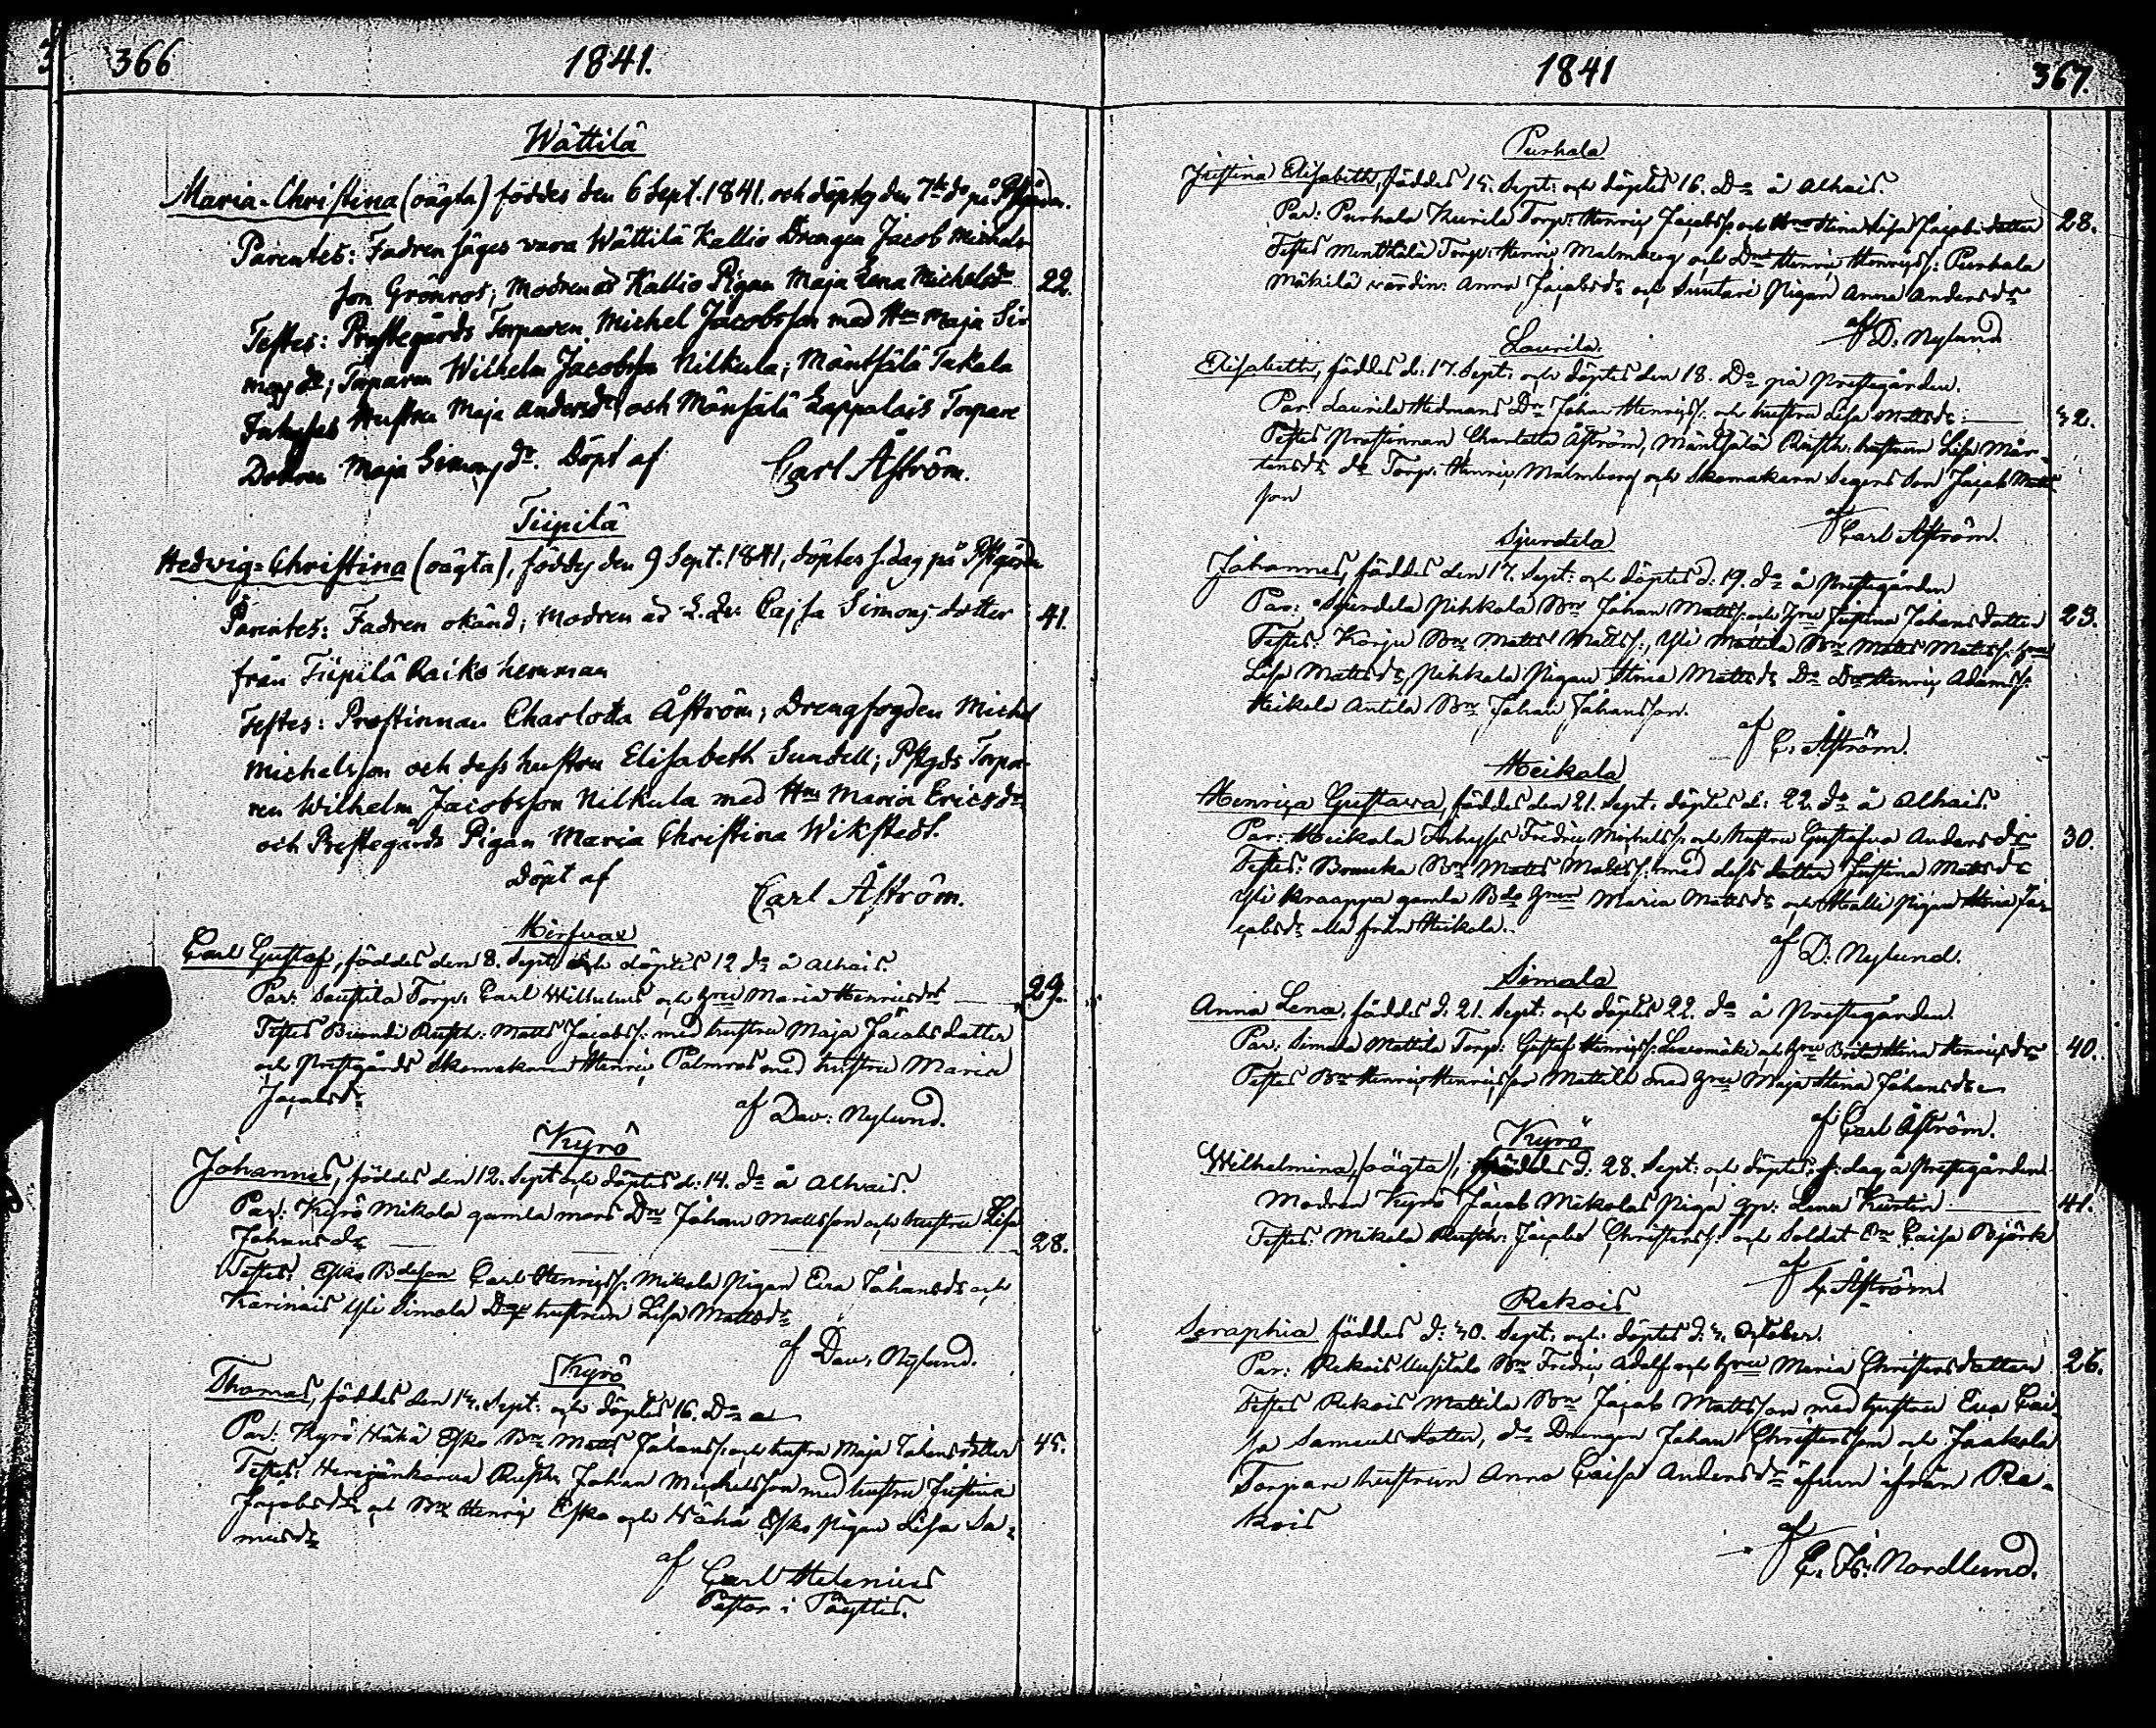 366
1841.
Wättilä
Maria-Christina (oägta) föddes den 6 Sept. 1841. och döptes den 7de do på Pstgården.
Parentes: Fadren säges vara Wättilä Kallio Drengen Jacob Michels-
son Grönros; Modren är Kallio Pigan Maja Lena Michelsdr 22.
Testes: Prestegårds Torparen Michel Jacobsson med Hu Maja Si-
monsdr; Torparen Wilhelm Jacobsson Nilkula; Mäntsälä Takala
Inhyses Hustru Maja Andersdr och Mänsälä Lappalais Torpare
Dottren Maja Simonsdr. Döpt af Carl Åström.
Tiipilä
Hedwig-Christina (oägta), föddes den 9 Sept. 1841, döptes s. dag på Pstgården
Parentes: Fadren okänd; Modren är Cajsa Simons dotter 41.
från Tiipilä Raiko hemman
Testes: Prostinnan Charlotta Åström; Drengfogden Michel
Michelsson och dess hustru Elisabeth Sundell; Pstgds Torpa-
ren Wilhelm Jacobsson Nilkula med Hu Maria Ericsdr
och Prestegårds Pigan Maria Christina Wikstedt.
Döpt af Carl Åström.
Hirfvax
Carl Gustaf, föddes den 8. Sept: och döptes 12 do å Alhais.
Par: Torp: Carl Wilhelms och Hru Maria Henricsdr 29.
Testes Rusth: Matts Jacobss: med hustru Maja Jacobs dotter
och Prestgårds Skomakaren Henric Palmros med hustru Maria
Jacobsdr
af Dav: Nylund.
Kyrö
Johannes, föddes den 12. Sept och döptes d: 14. do å Alhais.
Par: Kyrö Mikola gamla mors Dr Johan Mattsson och hustru Lisa
Johansdr 28.
Testes: Esko Bdeson Carl Henricss: Mikola Pigan Eva Johansdr och
Karinais Yli Simola hustrun Lisa Mattsdr
af Dav: Nylund.
Kyrö
Thomas, föddes den 14. Sept: och döptes 16. Do
Par: Kyrö Hähä Esko Bn Matts Johanss: och hustru Maja Johans dotter 45.
Testes: Rusth: Johan Michelsson med hustru Justina
Jacobsdr och Bn Henric Esko och Hähä Esko Pigan Lisa Sa-
muelsdr
af Carl Helenius
Pastor i Pöyttis.
1841
367.
Purhala
Justina Elisabeth, föddes 15. Sept: och döptes 16. Do å Alhais.
Par: Purhala Kurila Torp: Henric Jacobss: och Hru Stina Lisa Jacobs dotter 28.
Testes Torp: Henric Malmberg och Dr Henric Henricss: Purhala
Mäkilä värdin: Anna Jacobsdr och Suutari Pigan Anna Andersdr
af D. Nylund
Laurila.
Elisabeth, föddes d: 17. Sept: och döptes den 18. Do på Prestegården.
Par: Laurila Hedmans Dr Johan Henricss: och hustru Lisa Mattsdr: 32.
Testes Prostinnan Charlotta Åström, Mäntsälä Rusth: hustrun Lisa Mår-
tensdr do Torp: Henric Malmberg och Skomakaren Segers Son Jacob Matts-
son
af Carl Åström.
Sjundela
Johannes, föddes den 17. Sept: och döptes d: 19. do å Prestegården
Par: Sjundela Pihkola Bn Johan Mattss: och Hru Justina Johans dotter 23.
Testes: Korju Bn Matts Mattss:, Yli Mattila Bn Matts Mattss: Hru
Lisa Mattsdr, Pihkala Pigan Stina Mattsdr Do Dr Henric Adamss:
Heikola Antila Bn Johan Johansson.
af C. Åström.
Heikola
Henrica Gustava, föddes den 21. Sept: döptes d: 22. do å Alhais.
Par: Heikola Inhyses Fredric Michelss: och hustru Gustafva Andersdr 30.
Testes: Bn Matts Matss: med dess dotter Justina Mattsdr
Yli Knaappa gamla Bde Hrun Maria Mattsdr och Halli Pigan Stina Ja-
cobsdr alla från Heikola.
af D. Nylund.
Simala
Anna Lena, föddes d. 21. Sept: och döptes 22. do å Prestegården.
Par: Simala Mattila Torp: Gustaf Henricss: och Hru Brita Stina Henricsdr 40.
Testes Bn Henric Henricsson Mattila med Hru Maja Stina Johansdr
af Carl Åström.
Kyrö
Wilhelmina, (oägta), föddes d: 28. Sept: och döptes s: dag å Prestegården.
Modren Kyrö Jacob Mikolas Piga qp: Lena Kurten 41.
Testes: Mikola Rusth: Jacob Christerss: och Soldat Caisa Björk
af C. Åström
Rekois
Seraphia föddes d: 30. Sept: och döptes d: 3. October.
Par: Rekois Uusitalo Bn Fredric Adolf och Hru Maria Christers dotter 26.
Testes Rekois Mattila Bn Jacob Mattsson med hustru Eva Cai-
sa Samuels dotter, do Drengen Johan Christersson och Jaakola
Torpare hustrun Anna Caisa Andersdr äfven ifrån Re-
kois
af C. Fr: Nordlund.